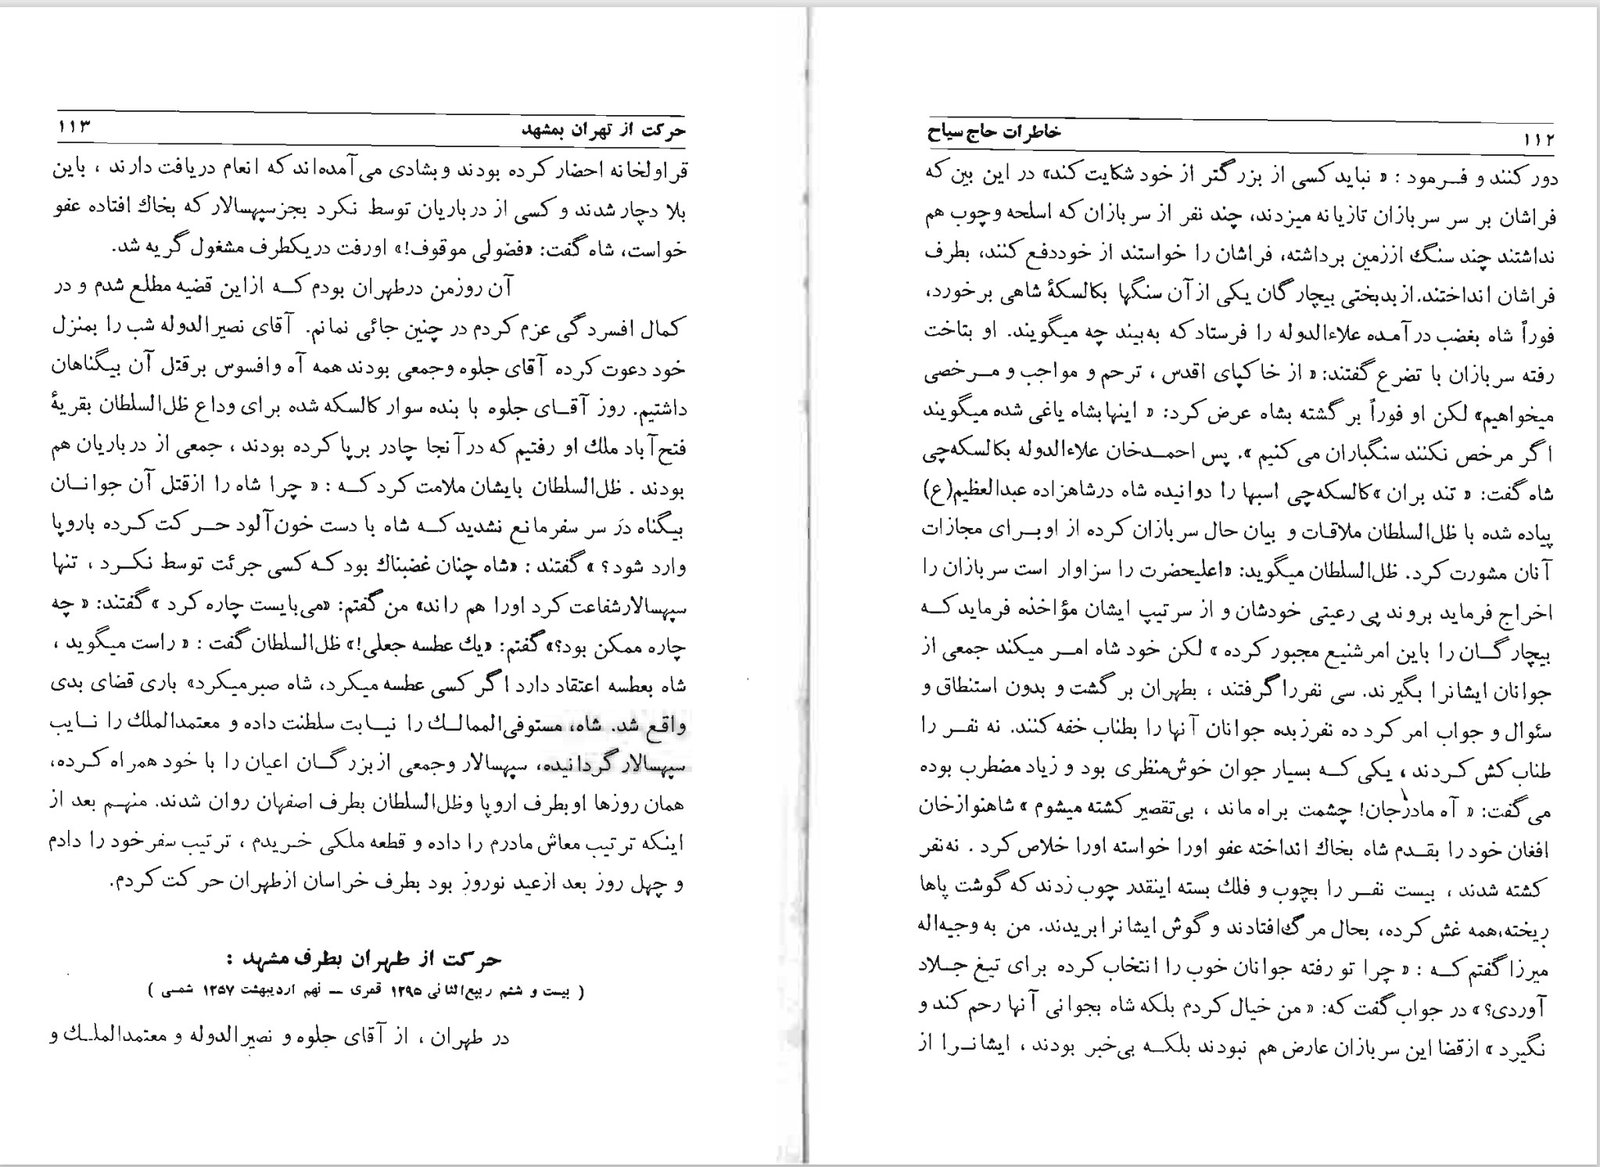 ۱۱۲
خاطرات حاج سیاح
دور کنند و فرمود : « نباید کسی از بزرگتر از خود شکایت کند» در این بین که
فراشان بر سر سربازان تازیانه میزدند، چند نفر از سربازان که اسلحه وچوب هم
نداشتند چند سنگ اززمین برداشته، فراشان را خواستند از خوددفع کنند، بطرف
فراشان انداختند. ازبدبختی بیچارگان یکی از آن سنگها بکالسکهٔ شاهی برخورد،
فوراً شاه بغضب درآمده علاءالدوله را فرستاد که به‌بیند چه میگویند. او بتاخت
رفته سربازان با تضرع گفتند: « از خاکپای اقدس ، ترحم و مواجب و مرخصی
میخواهیم» لکن او فوراً برگشته بشاه عرض کرد: « اینهابشاه یاغی شده میگویند
اگر مرخص نکنند سنگباران می‌کنیم ». پس احمدخان علاءالدوله بکالسکه‌چی
شاه گفت: « تند بران »کالسکه‌چی اسبها را دوانیده شاه درشاهزاده عبدالعظیم(ع)
پیاده شده با ظل‌السلطان ملاقات و بیان حال سربازان کرده از اوبرای مجازات
آنان مشورت کرد. ظل‌السلطان میگوید: «اعلیحضرت را سزاوار است سربازان را
اخراج فرماید بروند پی رعیتی خودشان و از سرتیپ ایشان مؤاخذه فرماید که
بیچارگان را باین امرشنیع مجبور کرده » لکن خود شاه امر میکند جمعی از
جوانان ایشانرا بگیرند. سی نفرراگرفتند ، بطهران برگشت و بدون استنطاق و
سئوال و جواب امر کرد ده نفرزبده جوانان آنها را بطناب خفه کنند. نه نفر را
طناب کش کردند ، یکی که بسیار جوان خوش‌منظری بود و زیاد مضطرب بوده
می‌گفت: « آه مادرجان! چشمت براه ماند ، بی‌تقصیر کشته میشوم » شاهنوازخان
افغان خود را بقدم شاه بخاك انداخته عفو اورا خواسته اورا خلاص کرد . نه‌نفر
کشته شدند ، بیست نفر را بچوب و فلك بسته اینقدر چوب زدند که گوشت پاها
ریخته،همه غش کرده، بحال مرگ‌افتادند و گوش ایشانرا بریدند. من به وجیه‌اله
میرزا گفتم که : « چرا تو رفته جوانان خوب را انتخاب کرده برای تیغ جلاد
آوردی؟» در جواب گفت که: « من خیال کردم بلکه شاه بجوانی آنها رحم کند و
نگیرد » ازقضا این سربازان عارض هم نبودند بلکه بی‌خبر بودند ، ایشانرا از
حرکت از تهران بمشهد
۱۱۳
قراولخانه احضار کرده بودند وبشادی می‌آمده‌اند که انعام دریافت دارند ، باین
بلا دچار شدند و کسی از درباریان توسط نکرد بجزسپهسالار که بخاك افتاده عفو
خواست، شاه گفت: «فضولی موقوف!» اورفت دریکطرف مشغول گریه شد.
آن روزمن درطهران بودم که ازاین قضیه مطلع شدم و در
کمال افسردگی عزم کردم در چنین جائی نمانم. آقای نصیرالدوله شب را بمنزل
خود دعوت کرده آقای جلوه وجمعی بودند همه آه وافسوس برقتل آن بیگناهان
داشتیم. روز آقای جلوه با بنده سوار کالسکه شده برای وداع ظل‌السلطان بقریهٔ
فتح‌آباد ملك او رفتیم که درآنجا چادر برپا کرده بودند ، جمعی از درباریان هم
بودند . ظل‌السلطان بایشان ملامت کرد که : « چرا شاه را ازقتل آن جوانان
بیگناه در سر سفر مانع نشدید که شاه با دست خون‌آلود حرکت کرده باروپا
وارد شود؟ » گفتند : «شاه چنان غضبناك بود که کسی جرئت توسط نکرد ، تنها
سپهسالارشفاعت کرد اورا هم راند» من گفتم: «می‌بایست چاره کرد » گفتند: « چه
چاره ممکن بود؟» گفتم: «یك عطسه جعلی!» ظل‌السلطان گفت : « راست میگوید ،
شاه بعطسه اعتقاد دارد اگر کسی عطسه میکرد، شاه صبرمیکرد» باری قضای بدی
واقع شد. شاه، مستوفی‌الممالك را نیابت سلطنت داده و معتمدالملك را نایب
سپهسالار گردانیده، سپهسالار وجمعی ازبزرگان اعیان را با خود همراه کرده،
همان روزها اوبطرف اروپا وظل‌السلطان بطرف اصفهان روان شدند. منهم بعد از
اینکه ترتیب معاش مادرم را داده و قطعه ملکی خریدم ، ترتیب سفر خود را دادم
و چهل روز بعد ازعید نوروز بود بطرف خراسان ازطهران حرکت کردم.
حرکت از طهران بطرف مشهد :
( بیست و ششم ربیع‌الثانی ۱۲۹۵ قمری – نهم اردیبهشت ۱۲۵۷ شمسی )
در طهران ، از آقای جلوه و نصیرالدوله و معتمدالملك و